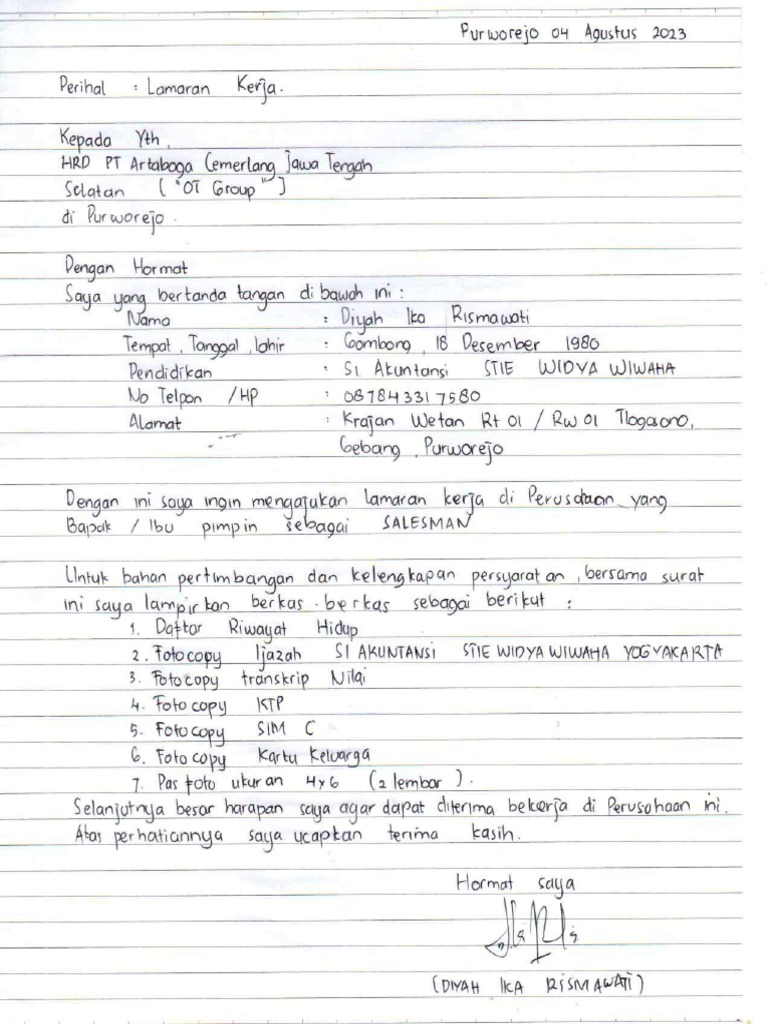 Purworejo 04 Agustus 2023
Perihal : Lamaran Kerja.
Kepada Yth,
HRD PT Artaboga Cemerlang Jawa Tengah
Selatan ("OT Group")
di Purworejo.
Dengan Hormat
Saya yang bertanda tangan di bawah ini :
Nama : Diyah Ika Rismawati
Tempat, Tanggal, lahir : Gombong, 18 Desember 1980
Pendidikan : S1 Akuntansi STIE WIDYA WIWAHA
No Telpon / HP : 087843317580
Alamat : Krajan Wetan Rt 01 / Rw 01 Tlogosono,
Gebang, Purworejo
Dengan ini saya ingin mengajukan lamaran kerja di Perusahaan yang
Bapak / Ibu pimpin sebagai SALESMAN
Untuk bahan pertimbangan dan kelengkapan persyaratan, bersama surat
ini saya lampirkan berkas-berkas sebagai berikut :
1. Daftar Riwayat Hidup
2. Fotocopy Ijazah S1 AKUNTANSI STIE WIDYA WIWAHA YOGYAKARTA
3. Fotocopy transkrip Nilai
4. Fotocopy KTP
5. Fotocopy SIM C
6. Fotocopy Kartu Keluarga
7. Pas foto ukuran 4x6 (2 lembar).
Selanjutnya besar harapan saya agar dapat diterima bekerja di Perusahaan ini.
Atas perhatiannya saya ucapkan terima kasih.
Hormat saya
(DIYAH IKA RISMAWATI)